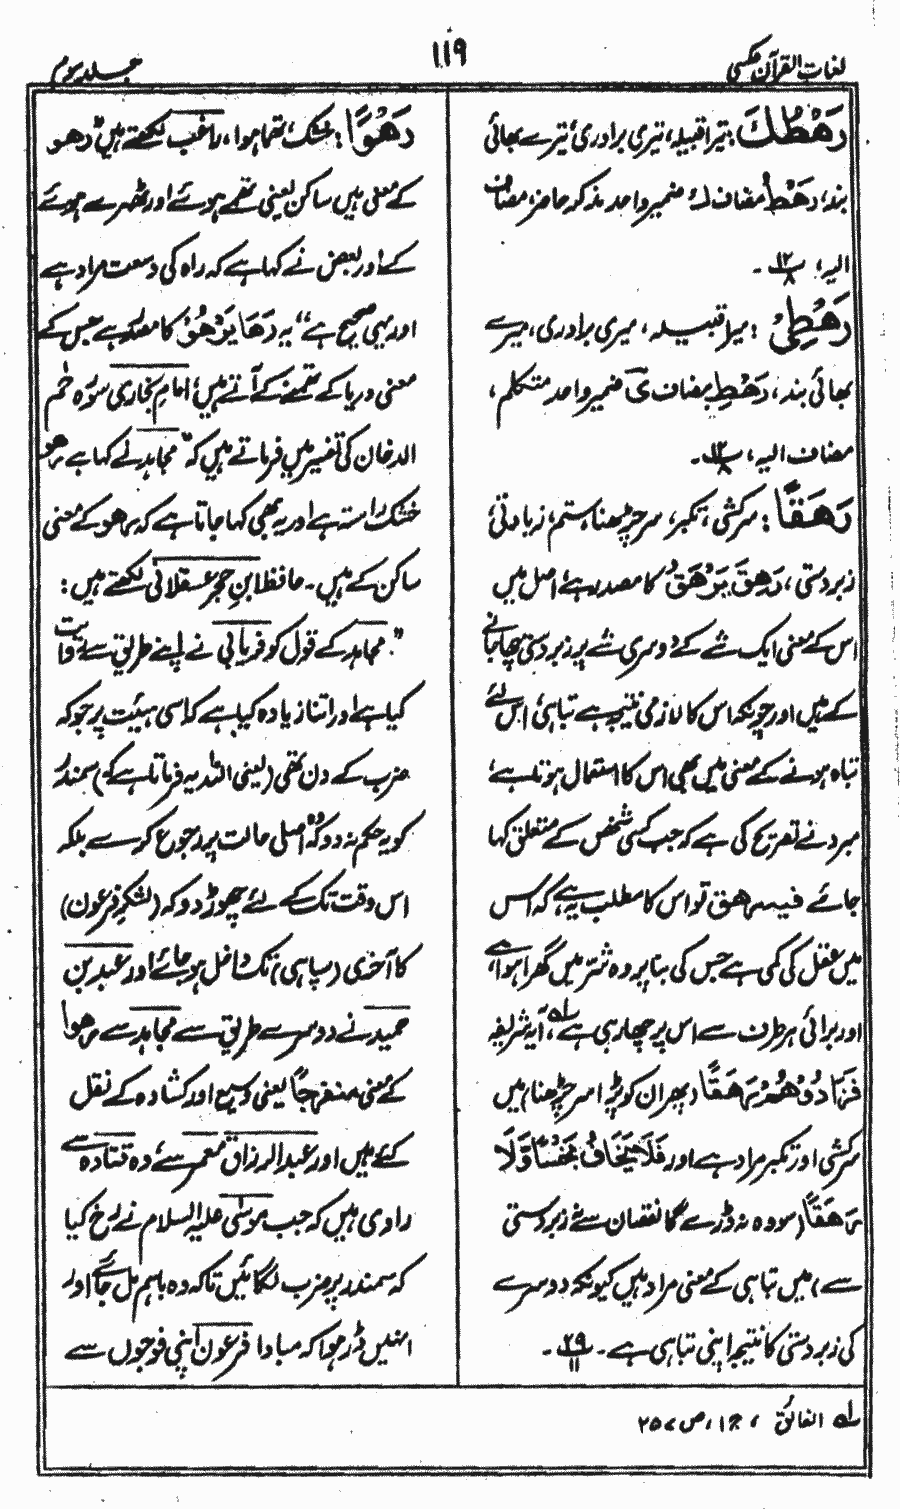 لغات القرآن عکسی
۱۱۹
جلد سوم
رَهْطُكَ : تیرا قبیلہ، تیری برادری، تیرے بھائی
بند، رَهْط مضاف كَ ضمیر واحد مذکر حاضر، مضاف
الیہ، ۱۲/۸ ۔
رَهْطِیْ : میرا قبیلہ، میری برادری، میرے
بھائی بند، رَهْطِ مضاف ی ضمیر واحد متکلم،
مضاف الیہ، ۱۲/۸ ۔
رَهَقًا : سرکشی، تکبر، سر چڑھنا، ستم، زیادتی،
زبردستی، رَهِقَ یَرْهَقُ کا مصدر ہے، اصل میں
اس کے معنی ایک شے کے دوسری شے پر زبردستی چھا جانے
کے ہیں اور چونکہ اس کا لازمی نتیجہ ہے تباہی، اس لئے
تباہ ہونے کے معنی میں بھی اس کا استعمال ہوتا ہے،
مبرد نے تصریح کی ہے کہ جب کسی شخص کے متعلق کہا
جائے فیہ رهق تو اس کا مطلب یہ ہے کہ اس
میں عقل کی کمی ہے جس کی بنا پر وہ شر میں گھرا ہوا ہے
اور برائی ہر طرف سے اس پر چھا رہی ہے لہ، آیہ شریفہ
فَزَادُوْهُمْ رَهَقًا (پھر ان کو بڑا سر چڑھنا) میں
سرکشی اور تکبر مراد ہے اور فَلَا یَخَافُ بَخْسًا وَّلَا
رَهَقًا (سو وہ نہ ڈرے گا نقصان سے نہ زبردستی
سے) میں تباہی کے معنی مراد ہیں کیونکہ دوسرے
کی زبردستی کا نتیجہ اپنی تباہی ہے ۔ ۲۹/۱۱ ۔
رَهْوًا : خشک، تھما ہوا، راغب لکھتے ہیں "رهو
کے معنی ہیں ساکن یعنی تھمے ہوئے اور ٹھہرے ہوئے
کے اور بعض نے کہا ہے کہ راہ کی وسعت مراد ہے
اور یہی صحیح ہے" یہ رَهَا یَرْهُوْ کا مصدر ہے جس کے
معنی دریا کے تھمنے کے آتے ہیں، امام بخاری سورہ حٰم
الدخان کی تفسیر میں فرماتے ہیں کہ "مجاہد نے کہا ہے رهو
خشک راستہ ہے اور یہ بھی کہا جاتا ہے کہ رهو کے معنی
ساکن کے ہیں ۔ حافظ ابن حجر عسقلانی لکھتے ہیں :
"مجاہد کے قول کو فریابی نے اپنے طریق سے روایت
کیا ہے اور اتنا زیادہ کیا ہے کہ اسی ہیئت پر جو کہ
ضرب کے دن تھی (یعنی اللہ یہ فرماتا ہے کہ) سمندر
کو یہ حکم نہ دو کہ وہ اصلی حالت پر رجوع کرے بلکہ
اس وقت تک کے لئے چھوڑ دو کہ (لشکر فرعون)
کا آخری (سپاہی) تک داخل ہو جائے اور عبد بن
حمید نے دوسرے طریق سے مجاہد سے رهوا
کے معنی منفرجًا یعنی وسیع اور کشادہ کے نقل
کئے ہیں اور عبد الرزاق معمر سے، وہ قتادہ سے
راوی ہیں کہ جب موسٰی علیہ السلام نے رخ کیا
کہ سمندر پر ضرب لگائیں تاکہ وہ باہم مل جائے اور
انہیں ڈر ہوا کہ مبادا فرعون اپنی فوجوں سے
لہ الفائق ، ج۱، ص ۲۵۷